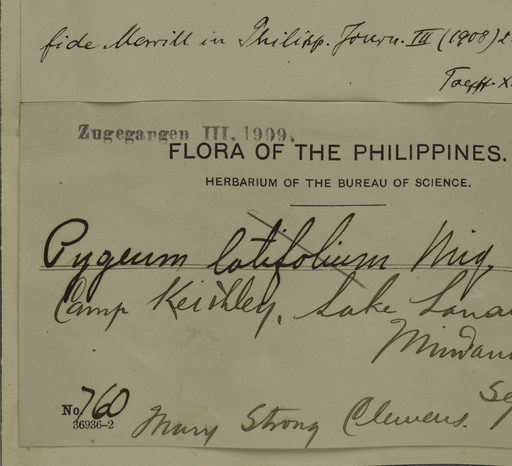 fide Merrill in Philipp. Journ. III (1908)
Zugegangen III. 1909.
FLORA OF THE PHILIPPINES.
HERBARIUM OF THE BUREAU OF SCIENCE.
Pygeum latifolium Miq.
Camp Keithley, Lake Lanao
Mindan
Se
No 760
36936-2
Mary Strong Clemens.